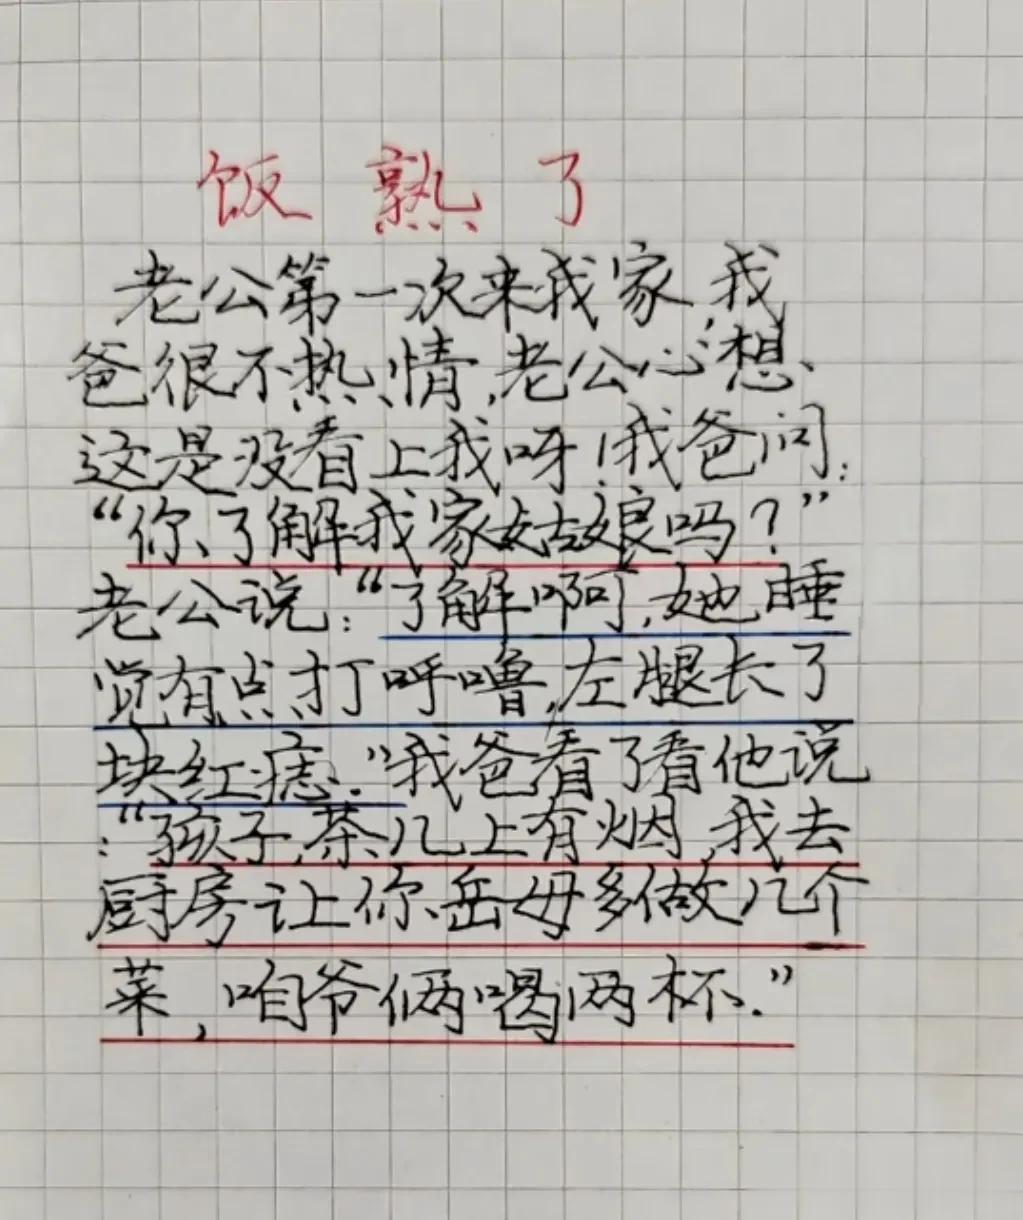 饭熟了
老公第一次来我家,我
爸很不热情,老公心想
这是没看上我呀!我爸问:
“你了解我家姑娘吗?”
老公说:“了解啊,她睡
觉有点打呼噜,左腿长了
块红痣.”我爸看了看他说
:“孩子,茶几上有烟,我去
厨房让你岳母多做几个
菜,咱爷俩喝两杯.”